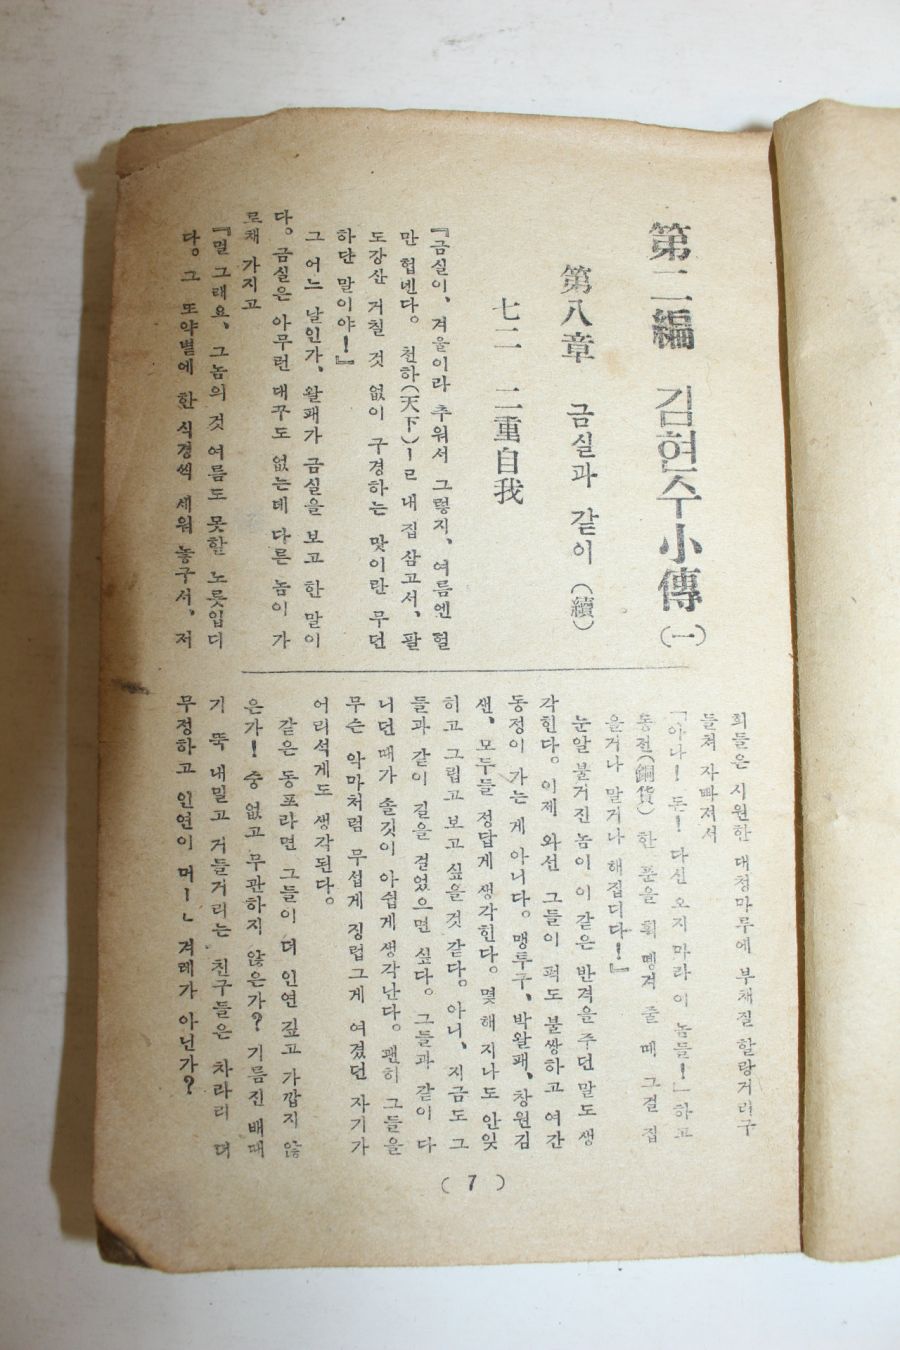 第二編 김현수小傳(一)
第八章 금실과 같이 (續)
七二 二重自我
『금실이、겨울이라 추워서 그렇지、여름엔 헐
만 헙넨다。 천하(天下)ㅣㄹ 내 집 삼고서、팔
도강산 거칠 것 없이 구경하는 맛이란 무던
하단 말이야!』
그 어느 날인가、왈패가 금실을 보고 한 말이
다。금실은 아무런 대꾸도 없는데 다른 놈이 가
로채 가지고
『멀 그래요、그놈의 것 여름도 못할 노릇입디
다。그 또약볕에 한 식경씩 세워 놓구서、저
희들은 시원한 대청마루에 부채질 할랑거리구
들쳐 자빠져서
「아나! 돈! 다신 오지 마라 이 놈들!」하고
동전(銅貨) 한 푼을 휙 뗑겨 줄 때 그걸 집
을거나 말거나 해집디다!』
눈알 불거진 놈이 이 같은 반격을 주던 말도 생
각힌다。이제 와선 그들이 퍽도 불쌍하고 여간
동정이 가는 게 아니다。맹투구、박왈패、창원김
샌、모두들 정답게 생각힌다。몇 해 지나도 안잊
히고 그립고 보고 싶을것 같다。아니、지금도 그
들과 같이 길을 걸었으면 싶다。그들과 같이 다
니던 때가 솔깃이 아쉽게 생각난다。괜히 그들을
무슨 악마처럼 무섭게 징럽그게 여겼던 자기가
어리석게도 생각된다。
같은 동포라면 그들이 더 인연 깊고 가깝지 않
은가! 중 없고 무관하지 않은가? 기름진 배때
기 뚝 내밀고 거들거리는 친구들은 차라리 더
무정하고 인연이 머ㅣㄴ 겨레가 아닌가?
( 7 )